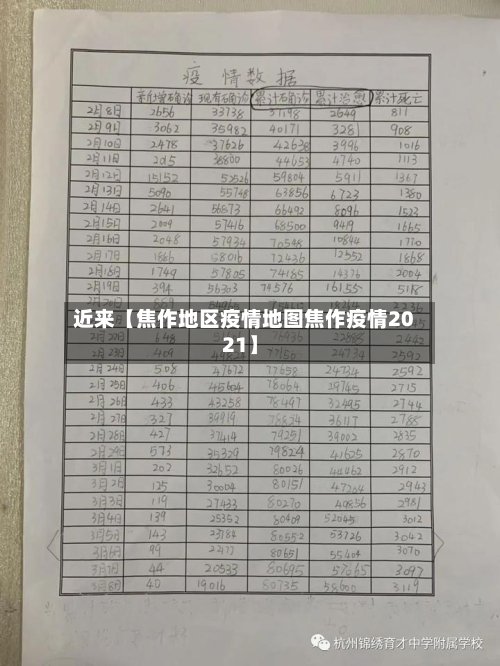 疫情数据
新增确诊 现有确诊 累计确诊 累计治愈 累计死亡
2月8日 2656 33738 37198 2649 811
2月9日 3062 35982 40171 3281 908
2月10日 2478 37626 42638 3996 1016
2月11日 2015 38800 44653 4740 1113
2月12日 15152 52526 59804 5911 1367
2月13日 5090 55748 63856 6723 1380
2月14日 2641 56873 66492 8096 1523
2月15日 2009 57416 68500 9419 1665
2月16日 2048 57934 70548 10844 1770
2月17日 1886 58016 72436 12552 1868
2月18日 1749 57805 74185 14376 2004
2月19日 394 56303 74576 16155 5188
近来【焦作地区疫情地图焦作疫情20
21】
409 49824 77150 24734 2592
2月24日 508 47672 77658 24734 2592
2月25日 406 45604 78064 29745 2715
2月26日 433 43258 78497 32495 2744
2月27日 327 39919 78824 36117 2788
2月28日 427 37414 79251 39002 2835
2月29日 573 35329 79824 41625 2870
3月1日 202 32652 80026 44462 2912
3月2日 125 30004 80151 47204 2943
3月3日 119 27433 80270 2981
3月4日 139 25352 80409 52045 3012
3月5日 143 23784 80552 53726 3042
3月6日 99 80651 55404 3070
3月7日 44 20533 80695 57065 3097
3月8日 40 19016 80735 58600 3119
杭州锦绣育才中学附属学校